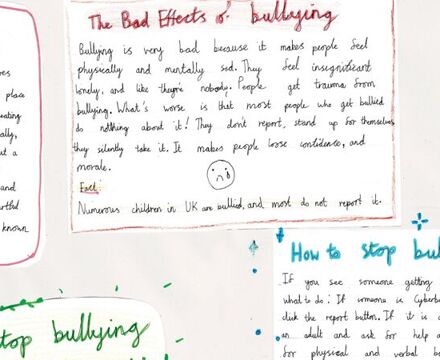 The Bad Effects of bullying
Bullying is very bad because it makes people feel
physically and mentally sad. They feel insignificant
lonely, and like they're nobody. People get trauma from
bullying. What's worse is that most people who get bullied
do nothing about it! They don't report, stand up for themselves
they silently take it. It makes people loose confidence, and
morale.
Fact:
Numerous children in UK are bullied, and most do not report it.
place
and
known
How to stop bul
If you see someone getting
what to do: If someone is Cyberb
click the report button. If it is
an adult and ask for help
for physical and verbal b
stop bullying